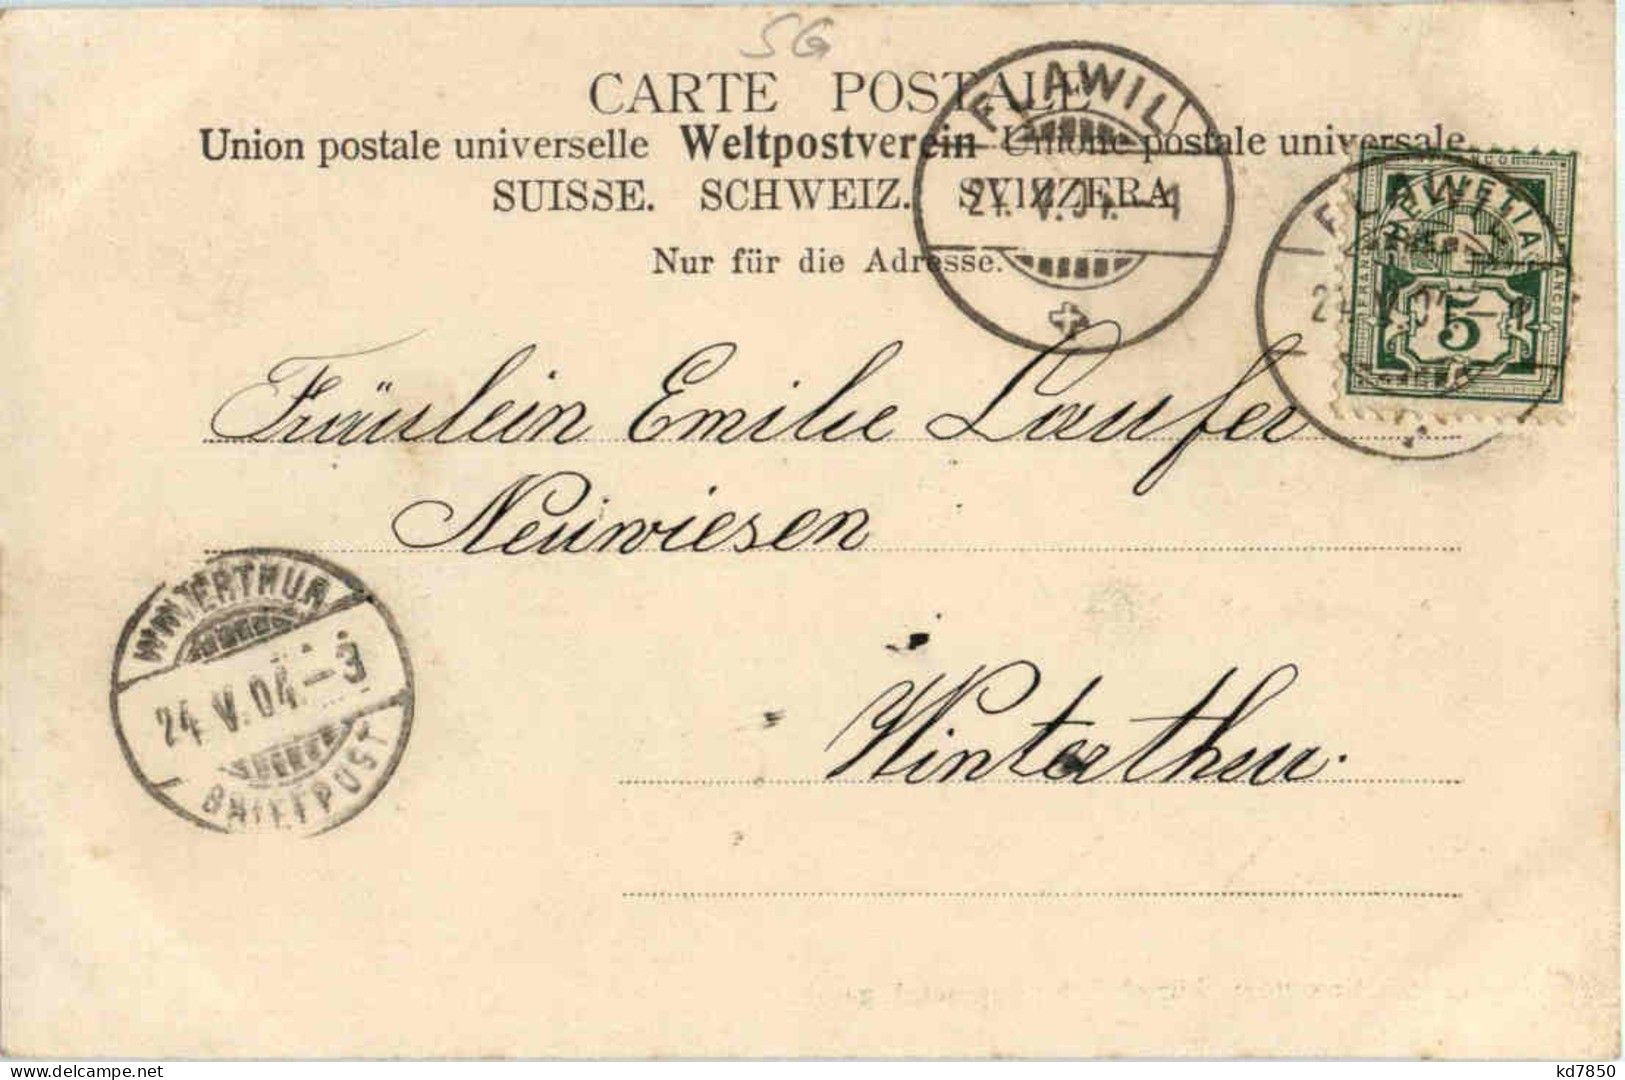 SG
CARTE POSTALE
Union postale universelle Weltpostverein Unione postale universale
SUISSE. SCHWEIZ. SVIZZERA
Nur für die Adresse.
FLAWIL
24. V. 04. – 1
FLAWIL
HELVETIA
FRANCO
5
Fräulein Emilie Laufer
Neuwiesen
Winterthur.
WINTERTHUR
24. V. 04. – 3
BRIEFPOST
kd7850